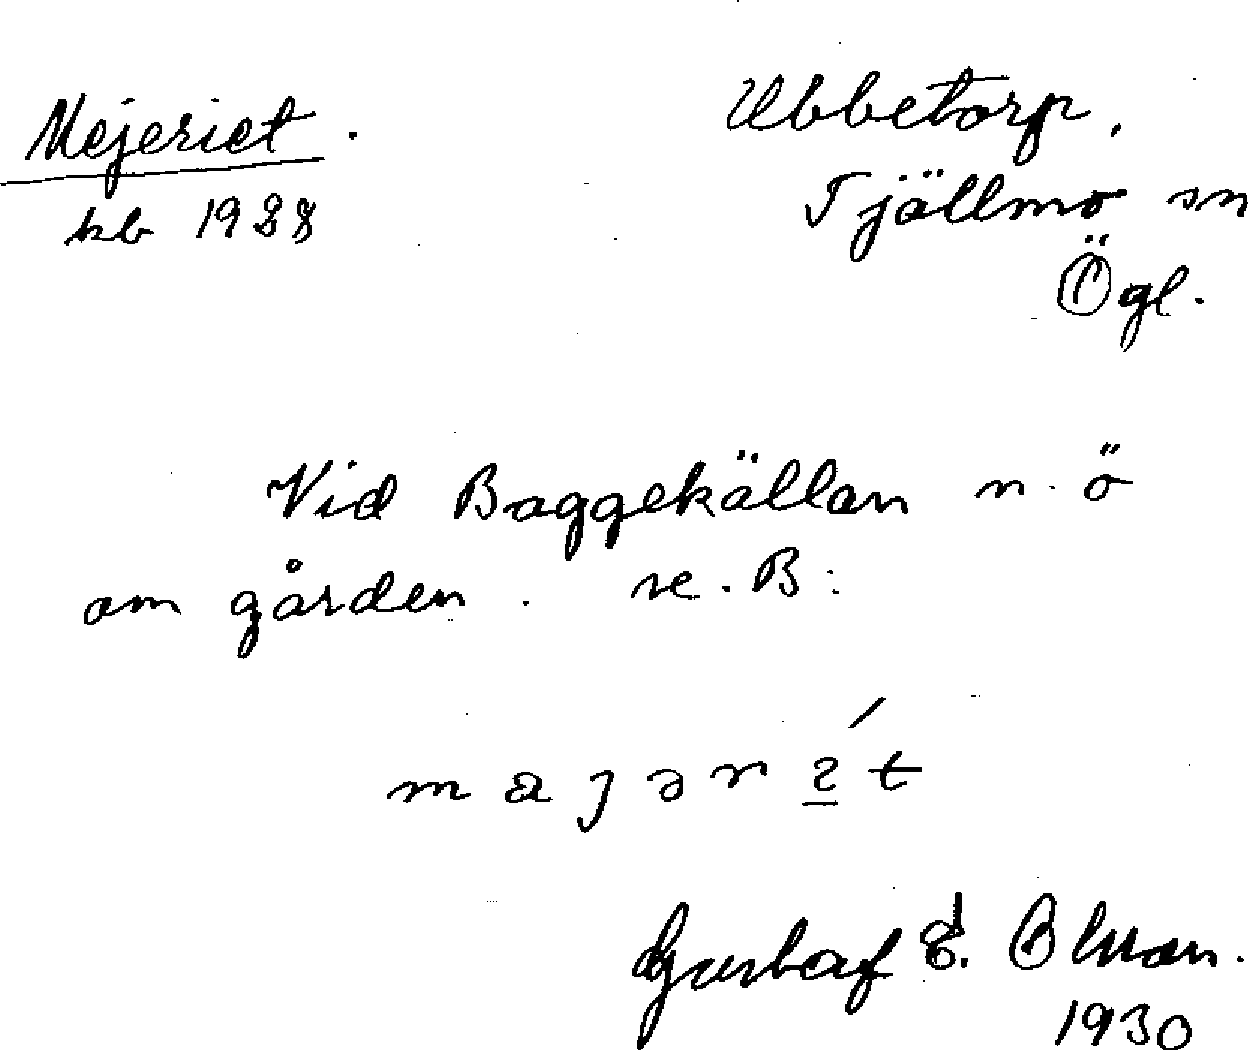 Mejeriet.
kb 1928
Ubbetorp,
Tjällmo sn
Ögl.
Vid Baggekällan n. ö
om gården. se. B:
majər
Gustaf E. Olsson.
1930